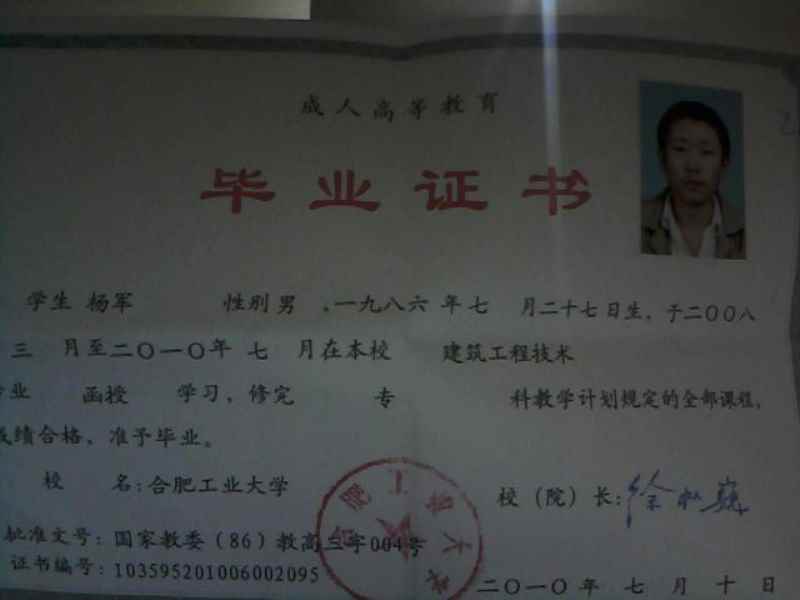 成人高等教育
毕业证书
学生 杨军 性别 男 ,一九八六 年 七 月二十七日生, 于二〇〇八
三 月至二〇一〇年 七 月在本校 建筑工程技术
业 函授 学习, 修完 专 科教学计划规定的全部课程,
成绩合格, 准予毕业。
校 名: 合肥工业大学
校 (院) 长:
批准文号: 国家教委 (86) 教高三字004号
证书编号: 103595201006002095
二〇一〇 年 七 月 十 日